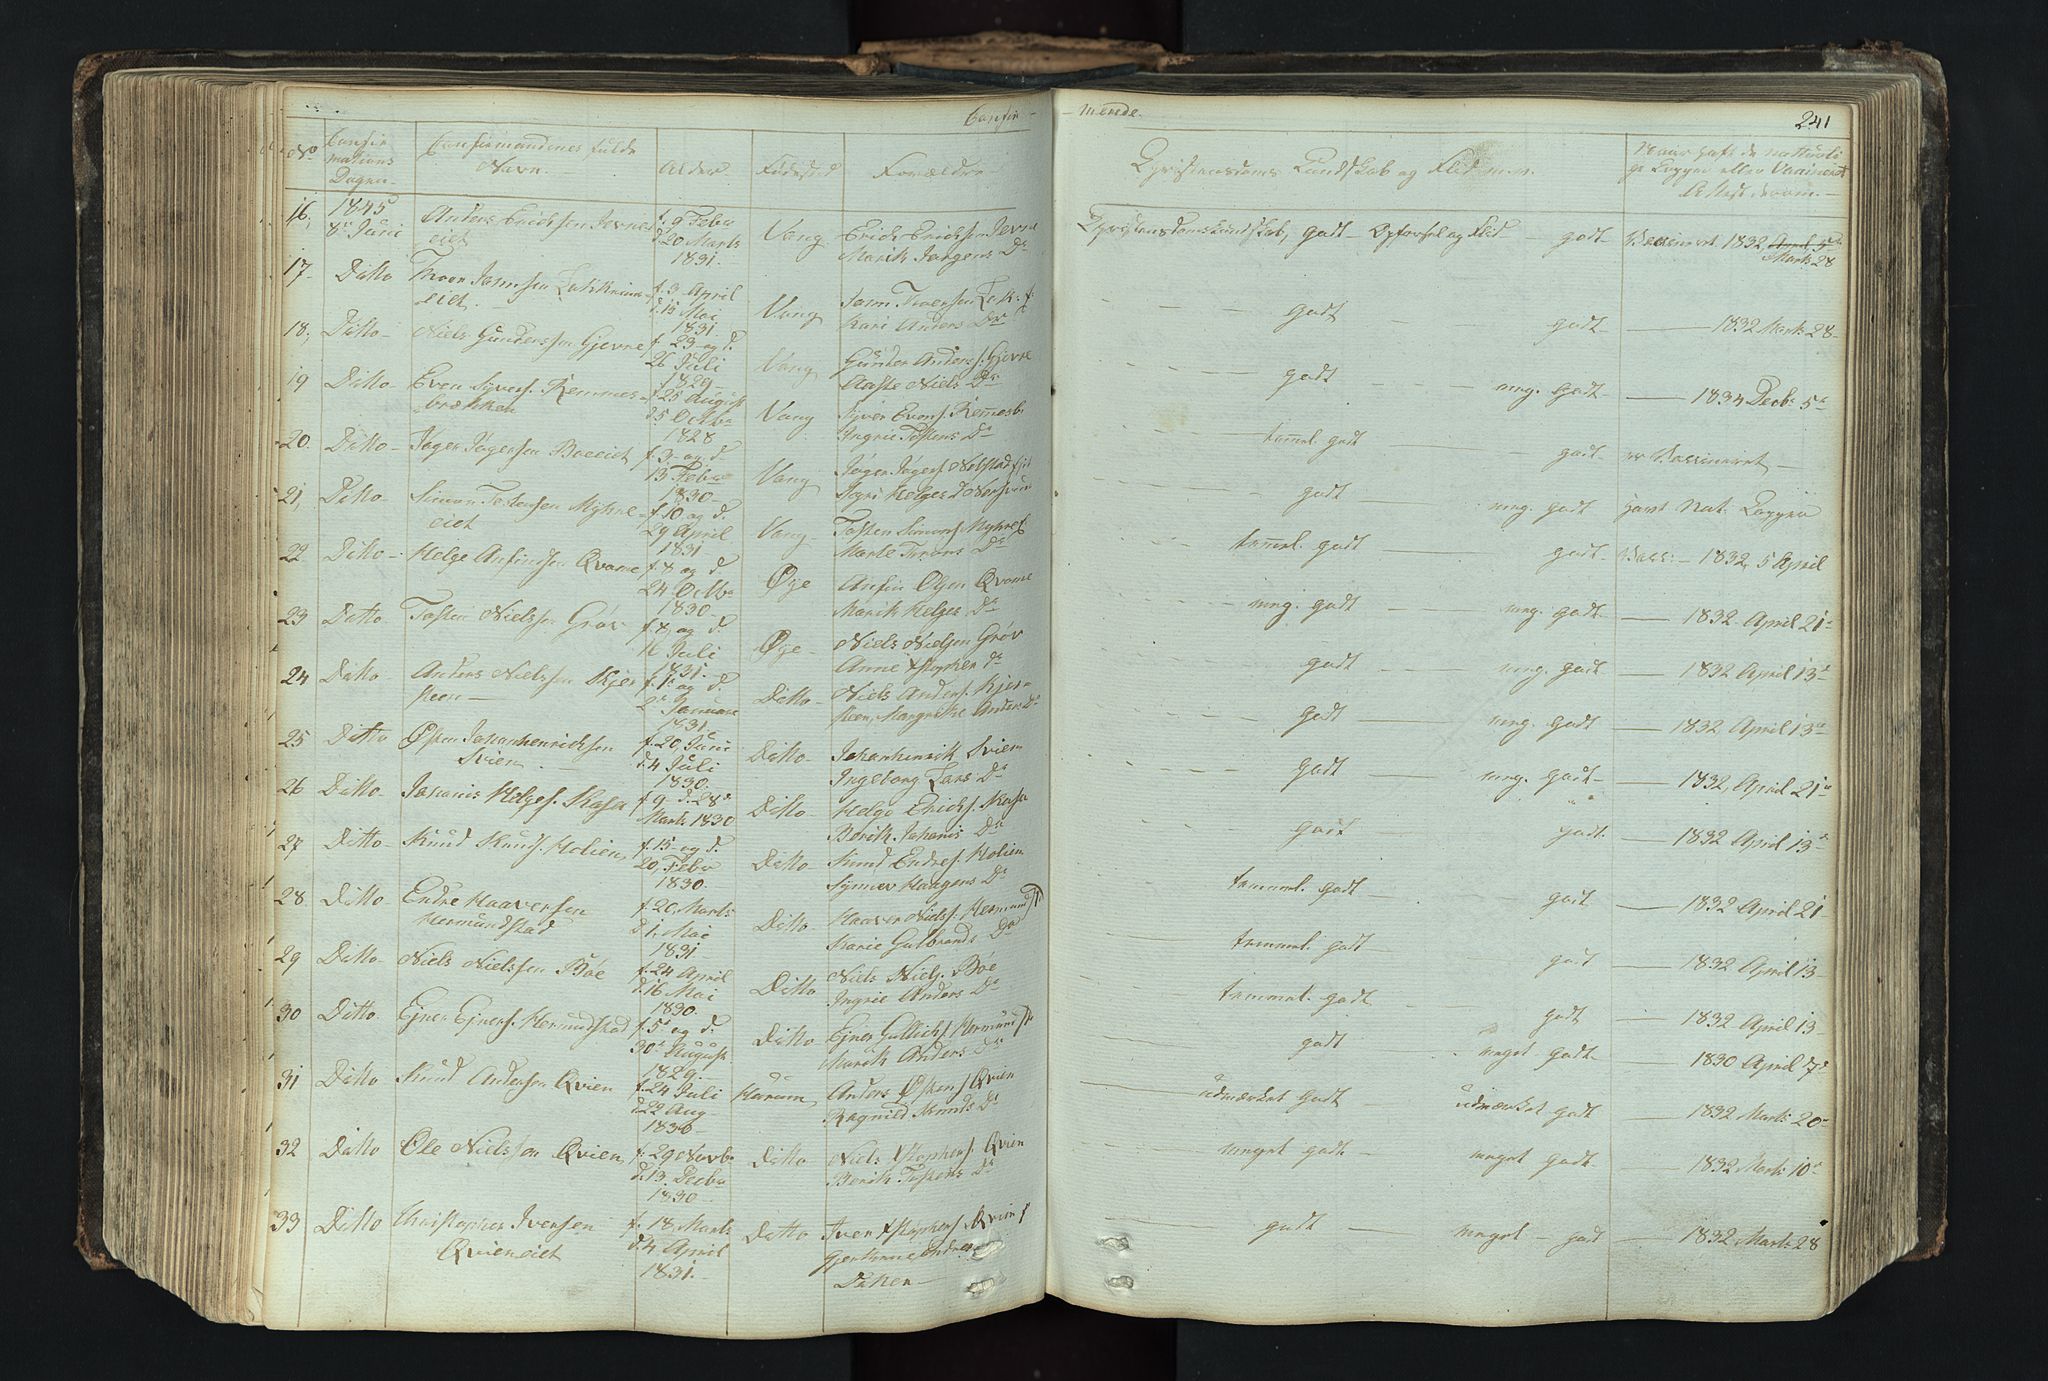 Confir-
merede.
241
No
Confir
mations
Dagen
Confirmandenes fulde
Navn.
Alder.
Födested
Forældre
Christendoms Kundskab og Flid m.m.
Naar haft de naturli
ge Kopper eller Vaccineret
Attest derom.
16,
1845
8de Juni
Anders Erichsen Jevne
eiet
f. 9 Febr
d. 20 Marts
1831.
Vang
Erich Erichsen Jevne
Marit Jørgens Dr
Christendomskundskab, godt - Opførsel og Flid - godt
Vaccineret 1832 April 5te
Marts 28
17-
Ditto
eiet
f. 3 April
d. 15 Mai
1831.
Vang
Kari Anders Dr
godt
godt
1832 Marts 28-
18,
Ditto-
Niels Gundersen Gjevne
f. 23 og d.
26 Juli
1829-
Vang
Gunder Anders. Gjevne
Aaste Niels Dr
godt
meg. godt
1834 Decbr 5te
19
Ditto-
Even Syvers. Remmes-
brækken
f. 25 August
d. 5 Octbr
1828
Vang
Syver Evens. Remmesb.
Ingrie Tostens Dr
temmel. godt
godt
er Vaccineret
20.
Ditto-
Jøger Jøgersen Boeeiet
f. 3 og d
13 Febr
1830-
Vang
Jøger Jøgers. Nolstadejet
Sigri Helges D
godt
meg. godt
havt Nat. Kopper
21,
Ditto-
Simon Tostensen Myhre-
eiet
f. 10 og d.
29 April
1831
Vang-
Tosten Simons. Myhre
Marte Trons Dr
temmel. godt
godt
Vacc: - 1832, 5 April
22
Ditto-
Helge Anfindsen Qvame
f. 8 og d.
24 Octbr
1830-
Øye
Anfin Olsen Qvame
Marit Helges Dr
meg. godt
meg. godt
1832 April 21-
23
Ditto
Tosten Nielsen Gröv
f. 8, og d.
Juli
1831.
Øye-
Niels Nielsen Gröv
Anne Xstopher Dr
godt
meg. godt
1832 April 13de
24
Ditto-
Anders Nielssen Kjer
steen-
f. 1 og d.
2 Januar
1831.
Ditto-
Niels Anders. Kjer-
steen, Margrethe Anders Dr
Godt
meg. godt
1832 April 13de
25
Ditto
Østen Johanhenrichsen
Svien
f. 20, Juni
d. 4 Juli
1830.
Ditto-
Johanhenrik Svien
Ingeborg Lars Dr
Godt
meg. godt-
1832, April 21de
26
Ditto-
Johanis Helges. Kasa
f. 9 d. 28de
Marts 1830
Ditto-
Helge Erichs. Kasa
Berit Johanis Dr
godt
godt
1832 April 13de
27
Ditto-
Knud Knuds. Holien
f. 15 og d.
20, Febr
1830.
Ditto
Knud Endres. Holien
Synnev Haagens Dr
temmel. godt
godt
1832 April 21
28
Ditto
Endre Haaversen
Hermundstad
f. 20, Marts
d. 1. Mai
1831
Ditto-
Haaver Niels. Hermundst
Marie Gulbrands Dr
temmel. godt
godt
1832 April 13-
29
Ditto-
Niels Nielssen Böe
f. 24 April
d. 16 Mai
1830.
Ditto
Niels Niels. Böe
Ingrie Anders Dr
temmel. godt
godt
1832 April 13-
30
Ditto
Ejner Ejners. Hermundstad
f. 5 og d.
30 August
1829.
Ditto
Ejner Gullichs. Hermundst
Marit Anders Dr
godt
meget godt
1830 April 7de
31
Ditto
Knud Andersen Qvien
f. 24 Juli
d. 22 Aug-
1830-
Hurum
Anders Østens. Qvien
Ragnild Knuds Dr
udmærket godt
udmærket godt
1832 Marts 20-
32
Ditto
Ole Nielssen Qvien
f. 29 Novbr
d. 13 Decbr
1830
Ditto
Niels Xstophers. Qvien
Berit Tostens Dr
meget godt
meget godt
1832 Marts 10de
33
Ditto
Christopher Iversen
Qvieneiet
f. 18, Marts
d. 4, April
1831.-
Ditto
Iver Xstophers. Qvien
Gjertrue Endres
Datter-
godt
meget - godt
1832 Marts 28